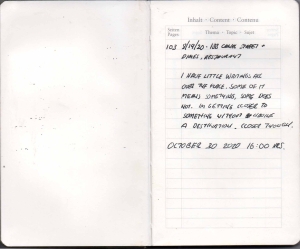 Inhalt · Content · Contenu
Seiten
Pages
Thema · Topic · Sujet
103 8/19/20 · 188 STREET +
DIMES, RESTAURANT
I HAVE LITTLE WRITINGS ALL
OVER THE PLACE. SOME OF IT
MEANS SOMETHING, SOME DOES
NOT. IM GETTING CLOSER TO
SOMETHING WITHOUT HAVING
A DESTINATION. CLOSER THOUGH.
OCTOBER 20 2020 16:00 HRS.